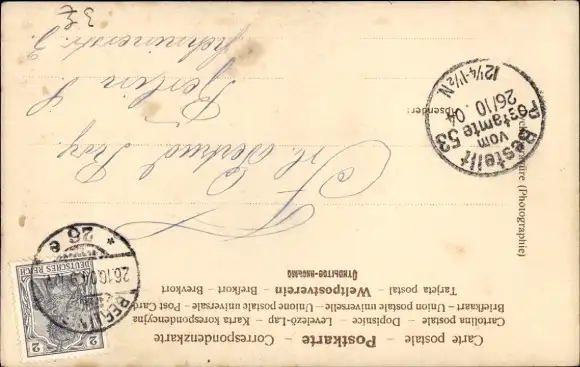 Carte postale — Postkarte — Correspondenzkarte
Cartolina postale — Dopisnice — Levelező-Lap — Karta korespondencyjna
Briefkaart — Union postale universelle — Unione postale universale — Post Card
Tarjeta postal — Weltpostverein — Brefkort — Brevkort
DEUTSCHES REICH
2
BERLIN
26.10.04
* 26 e *
Frl. Gertrud
Berlin S.
3.
Absender:
Bestellt
vom
Postamte 53
26/10. 04
12¼-1½ N.
(Photographie)